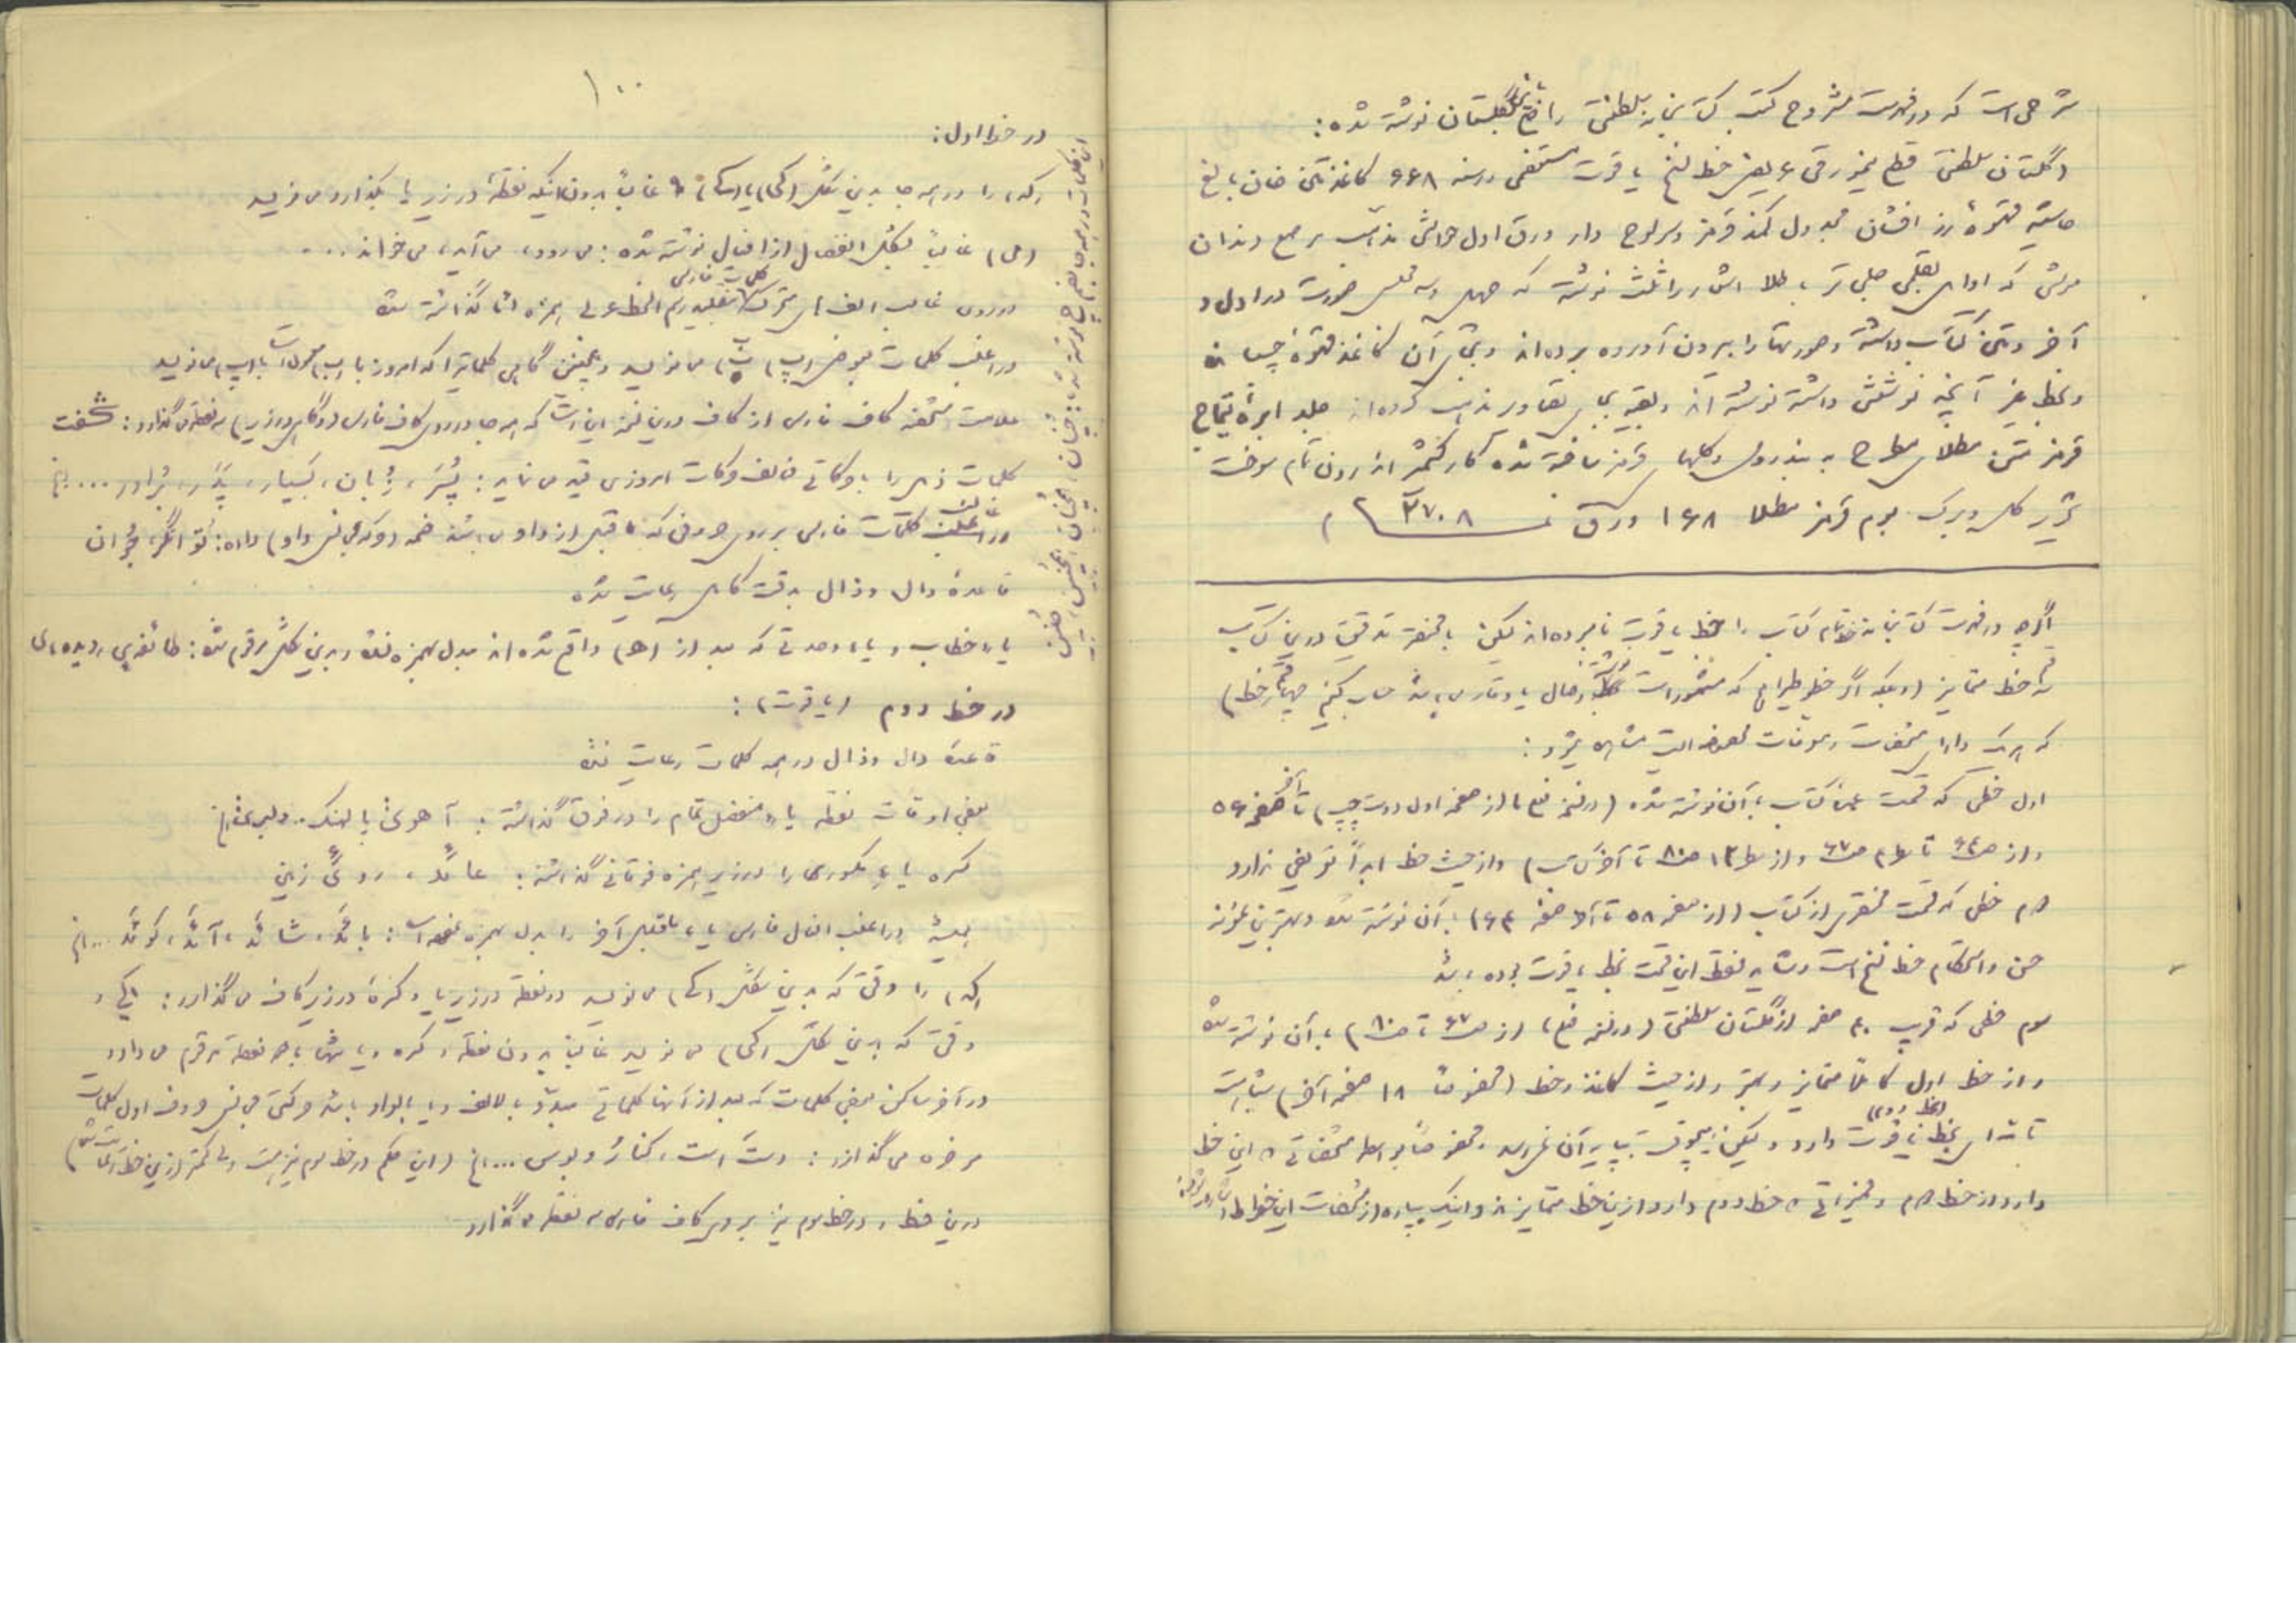 شرحی است که در فهرست مشروح کتب کتابخانه سلطنتی راجع باین گلستان نوشته شده:
(گلستان سلطنتی قطع نیم ورقی عریض خط نسخ یاقوت مستعصمی در سنه ۶۶۸ کاغذ متن خان بالغ
حاشیه قهوهٔ زر افشان مجدول کمند قرمز و سرلوح دار ورق اول حواشی مذهب مرصع دندان
موشی که اوایل بقلمی جلی تر با طلا اشعار را ثلث نوشته که چهل و سه مجلس صورت در اول و
آخر و متن کتاب داشته و صورتها را بیرون آورده برده‌اند و بجای آن کاغذ قهوهٔ چسبانده
و بخط غیر آنچه نوشتنی داشته نوشته‌اند و بقیه بجای تصاویر تذهیب کرده‌اند جلد ابرهٔ تیماج
قرمز متن مطلای مطرح به بند رومی و گلهای قرمز ساخته شده کار کشمیر اندرون تمام سوخت
تحریر گل و برگ بوم قرمز مطلا ۱۶۸ ورق نمره ۲۷۰۸)
اگرچه در فهرست کتابخانه خط تمام کتاب را بخط یاقوت نامبرده‌اند لیکن با مختصر تدقیق درین کتاب
سه خط متمایز (و بلکه اگر خطوطی را هم که مشهور است وصال یا وقار می‌باشد حساب کنیم چهار خط)
که هر یک دارای مشخصات و معرفات مخصوص است مشاهده میشود:
اول خطی که قسمت عمدهٔ کتاب بآن نوشته شده (در نسخه فع از صفحه اول دست چپ) تا آخر صفحه ۵۶
و از ص ۶۴ تا سطر ۲ ص ۶۷ و از سطر ۱۲ ص ۸۰ تا آخر کتاب) و از حیث خط ابداً تعریفی ندارد
دوم خطی که قسمت مختصری از کتاب (از صفحه ۵۸ تا آخر صفحه ۶۳) بآن نوشته شده و بهترین نمونه
حسن و استحکام خط نسخ است و شاید فقط این قسمت بخط یاقوت بوده باشد
سوم خطی که قریب ۴۰ صفحه از گلستان سلطنتی (در نسخه فع، از ص ۶۷ تا ص ۸۰) بآن نوشته شده
و از خط اول کاملاً متمایز و بهتر و از حیث کاغذ و خط (مخصوصاً ۱۸ صفحه آخر) شباهت
تامه‌ای بخط یاقوت (خط دوم) دارد ولیکن هیچوقت بپایه آن نمیرسد و مخصوصاً بواسطه مشخصاتی که این خط
دارد از خط دوم و ممیزاتی که خط دوم دارد ازین خط متمایزند و اینک بپاره از مشخصات این خطوط اشاره میشود:
۱۰۰
در خط اول:
(که) را در همه جا بدین شکل (کی) یا (کے) و غالباً بدون اینکه نقطهٔ در زیر یا بگذارد می‌نویسد
(می) غالباً بشکل انفصال از افعال نوشته شده: می رود، می آید، می خواند...
در روی غالب الف‌های متحرک کلمات فارسی بتقلید رسم الخط عربی همزه‌ها گذاشته شده
در اغلب کلمات بعوض (پ)، (ب) می‌نویسد و همچنین گاهی کلماتیرا که امروز با (ب) معمول است با (پ) می‌نویسد
علامت مشخصه کاف فارسی از کاف درین نسخه این است که همه جا در روی کاف فارسی (و گاهی در زیر) سه نقطه می‌گذارد: شگفت
کلمات ذیل را با حرکاتی مخالف حرکات امروزی قید می‌نماید: پُسَر، زُبان، بَسیار، پِدَر، بُرادر... الخ
در اغلب کلمات فارسی بر روی حروفی که ما قبل از واو می‌باشند ضمه (حرکه مجانس واو) داده: تُوانگر، جُوان
قاعدهٔ دال و ذال بدقت کامل رعایت شده
یاء خطاب و یاء وحدتی که بعد از (ه) واقع شده‌اند مبدل بهمزه نشده و بدین شکل مرقوم شده: طائفه‌یی، دیده‌ای
در خط دوم (یاقوت):
قاعدهٔ دال و ذال در همه کلمات رعایت نشده
بعضی اوقات نقطه یاء منفصل تمام را در فوق گذاشته: آهوی با پلنگ...
کسره یاء مکسوری را در زیر همزه فوقانی گذاشته: روئِ زمین
همیشه در اغلب افعال فارسی یاء ماقبل آخر را بدل بهمزه نموده است: بائد، شائد، آئد، گوئد... الخ
(که) را وقتی که بدین شکل (کے) می‌نویسد دو نقطه در زیر یا و کسرهٔ در زیر کاف می‌گذارد: کے و
وقتی که بدین شکل (کی) می‌نویسد غالباً بدون نقطه و کسره و یا تنها با دو نقطه مرقوم می‌دارد
در آخر ساکن بعضی کلمات که بعد از آنها کلماتی مبدو بالالف و یا بالواو باشد حرکتی مجانس حروف اول کلمات
مزبوره می‌گذارد: دستَ است، کنارُ و بوس... الخ (این حکم در خط سوم نیز هست ولی کمتر ازین خط رعایت شده)
درین خط و در خط سوم نیز بر روی کاف فارسی سه نقطه می‌گذارد